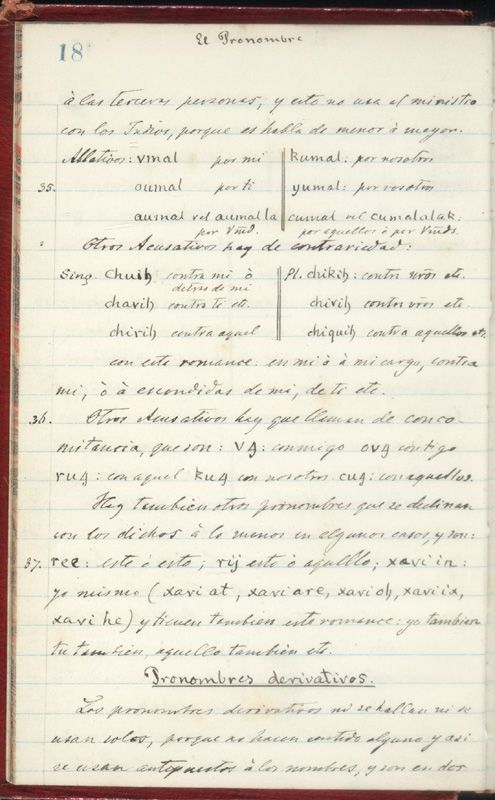 18
El Pronombre
à las terceras personas, y esto no usa el ministro
con los Indios, porque es habla de menor à mayor.
Ablativos: vmal por mi kumal: por nosotros
35. aumal por ti yumal: por vosotros
aumal vel aumalla cumal vel cumalalak:
por Vmd. por aquellos ò por Vmds.
Otros Acusativos hay de contrariedad:
Sing. Chuih contra mi ò Pl. chikih: contra nros etc.
detras de mi
chavih contra ti etc. chivih contra vros etc.
chirih contra aquel chiquih contra aquellos etc.
con este romance: en mi ò à mi cargo, contra
mi, ò à escondidas de mi, de ti etc.
36. Otros Acusativos hay que llaman de conco
mitancia, que son: v4: conmigo ov4 contigo
ru4: con aquel ku4 con nosotros cu4: con aquellos.
Hay tambien otros pronombres que se declinan
con los dichos à lo menos en algunos casos, y son:
37. ree: este ò esto; rij esto ò aquello; xavi in:
yo mismo (xavi at, xavi are, xavi oh, xavi ix,
xavi he) y tienen tambien este romance: yo tambien
tu tambien, aquello tambien etc.
Pronombres derivativos.
Los pronombres derivativos ni se hallan ni se
usan solos, porque no hacen sentido alguno y asi
se usan antepuestos à los nombres, y son en dos